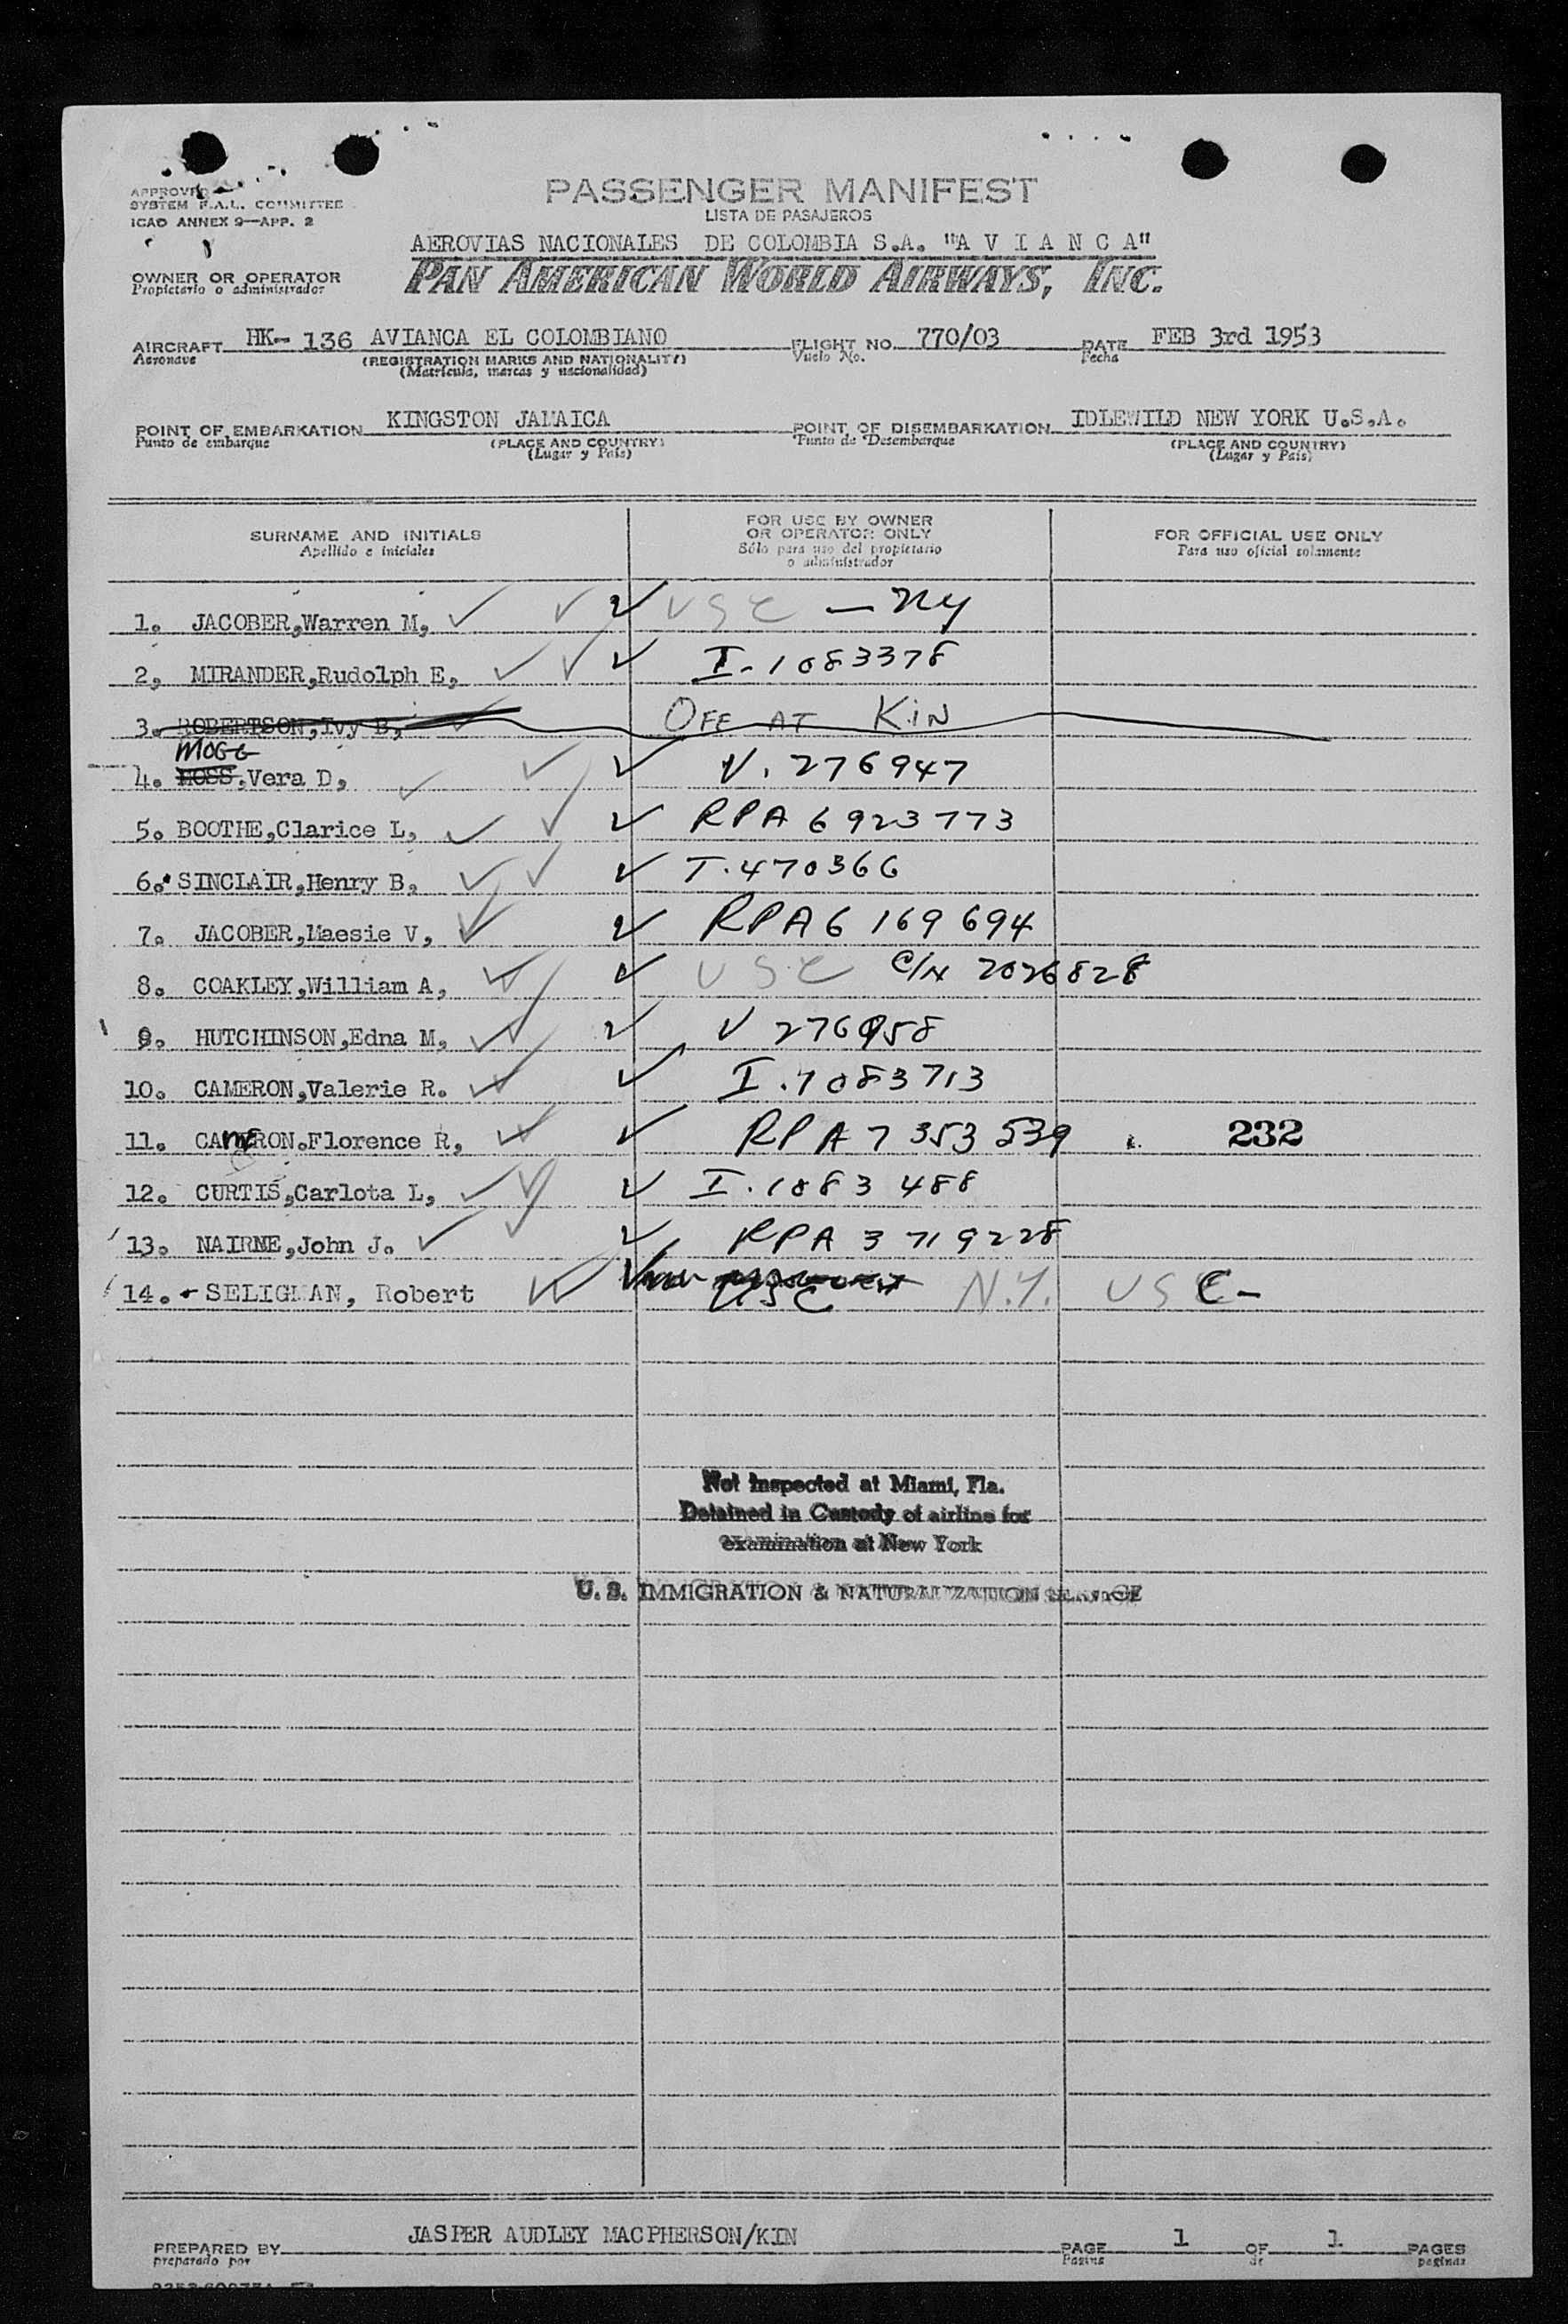 APPROVED
SYSTEM F.A.L. COMMITTEE
ICAO ANNEX 9—APP. 2
PASSENGER MANIFEST
LISTA DE PASAJEROS
AEROVIAS NACIONALES DE COLOMBIA S.A. "A V I A N C A"
PAN AMERICAN WORLD AIRWAYS, INC.
OWNER OR OPERATOR
Propietario o administrador
AIRCRAFT HK- 136 AVIANCA EL COLOMBIANO FLIGHT NO. 770/03 DATE FEB 3rd 1953
Aeronave (REGISTRATION MARKS AND NATIONALITY) Vuelo No. Fecha
(Matricula, marcas y nacionalidad)
POINT OF EMBARKATION KINGSTON JAMAICA POINT OF DISEMBARKATION IDLEWILD NEW YORK U.S.A.
Punto de embarque (PLACE AND COUNTRY) Punto de Desembarque (PLACE AND COUNTRY)
(Lugar y País) (Lugar y País)
SURNAME AND INITIALS
Apellido e iniciales
FOR USE BY OWNER
OR OPERATOR ONLY
Sólo para uso del propietario
o administrador
FOR OFFICIAL USE ONLY
Para uso oficial solamente
1. JACOBER,Warren M, USC — NY
2, MIRANDER,Rudolph E, I-1083378
3. ROBERTSON,Ivy B, OFF AT KIN
MOGG
4. MOSS,Vera D, V. 276947
5. BOOTHE,Clarice L, RPA 6923773
6. SINCLAIR,Henry B, T.470366
7. JACOBER,Maesie V, RPA6 169 694
8. COAKLEY,William A, USC C/N 2026828
9. HUTCHINSON,Edna M, V 276958
10. CAMERON,Valerie R. I.7083713
11. CAMERON.Florence R, RPA 7 353 539 232
12. CURTIS,Carlota L, I.1083 488
13. NAIRNE,John J. RPA 3 719228
14. - SELIGMAN, Robert USC N.Y. USC-
Not Inspected at Miami, Fla.
Detained in Custody of airline for
examination at New York
U. S. IMMIGRATION & NATURALIZATION SERVICE
PREPARED BY JASPER AUDLEY MACPHERSON/KIN PAGE 1 OF 1 PAGES
preparado por Pagina de paginas